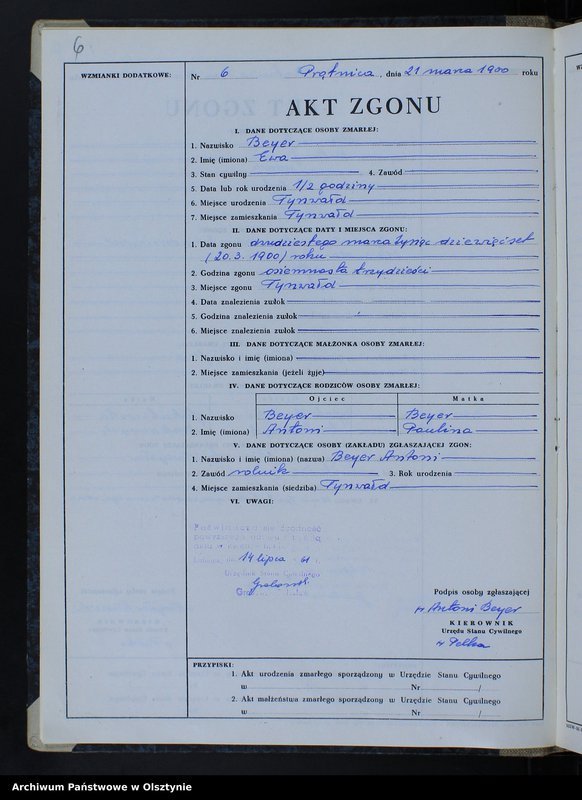 6
WZMIANKI DODATKOWE:
Nr 6 Prątnica, dnia 21 marca 1900 roku
AKT ZGONU
I. DANE DOTYCZĄCE OSOBY ZMARŁEJ:
1. Nazwisko Beyer
2. Imię (imiona) Ewa
3. Stan cywilny 4. Zawód
5. Data lub rok urodzenia 1/2 godziny
6. Miejsce urodzenia Tynwałd
7. Miejsce zamieszkania Tynwałd
II. DANE DOTYCZĄCE DATY I MIEJSCA ZGONU:
1. Data zgonu dwudziestego marca tysiąc dziewięćset
(20.3.1900) roku
2. Godzina zgonu osiemnasta trzydzieści
3. Miejsce zgonu Tynwałd
4. Data znalezienia zwłok
5. Godzina znalezienia zwłok
6. Miejsce znalezienia zwłok
III. DANE DOTYCZĄCE MAŁŻONKA OSOBY ZMARŁEJ:
1. Nazwisko i imię (imiona)
2. Miejsce zamieszkania (jeżeli żyje)
IV. DANE DOTYCZĄCE RODZICÓW OSOBY ZMARŁEJ:
Ojciec Matka
1. Nazwisko Beyer Beyer
2. Imię (imiona) Antoni Paulina
V. DANE DOTYCZĄCE OSOBY (ZAKŁADU) ZGŁASZAJĄCEJ ZGON:
1. Nazwisko i imię (imiona) (nazwa) Beyer Antoni
2. Zawód rolnik 3. Rok urodzenia
4. Miejsce zamieszkania (siedziba) Tynwałd
VI. UWAGI:
Poświadcza się zgodność
14 lipca 61
Urzędnik Stanu Cywilnego
Podpis osoby zgłaszającej
Antoni Beyer
KIEROWNIK
Urzędu Stanu Cywilnego
Pelka
PRZYPISKI:
1. Akt urodzenia zmarłego sporządzony w Urzędzie Stanu Cywilnego
w Nr /
2. Akt małżeństwa zmarłego sporządzony w Urzędzie Stanu Cywilnego
w Nr /
Archiwum Państwowe w Olsztynie